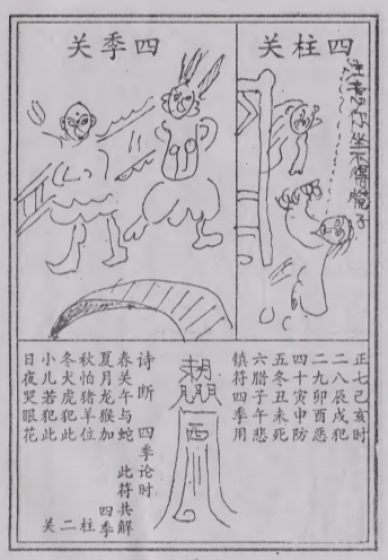 四柱关
注意你坐不得子
四季关
正七己亥时
二八辰戌犯
二九卯酉恶
四十寅申防
五冬丑未死
六腊子午悲
镇符四季用
西
诗断 四季论时
春关午与蛇 此符共解
夏月龙猴加 四季
秋怕猪羊位
冬犬虎犯此
小儿若犯此
日夜哭眼花
柱二关